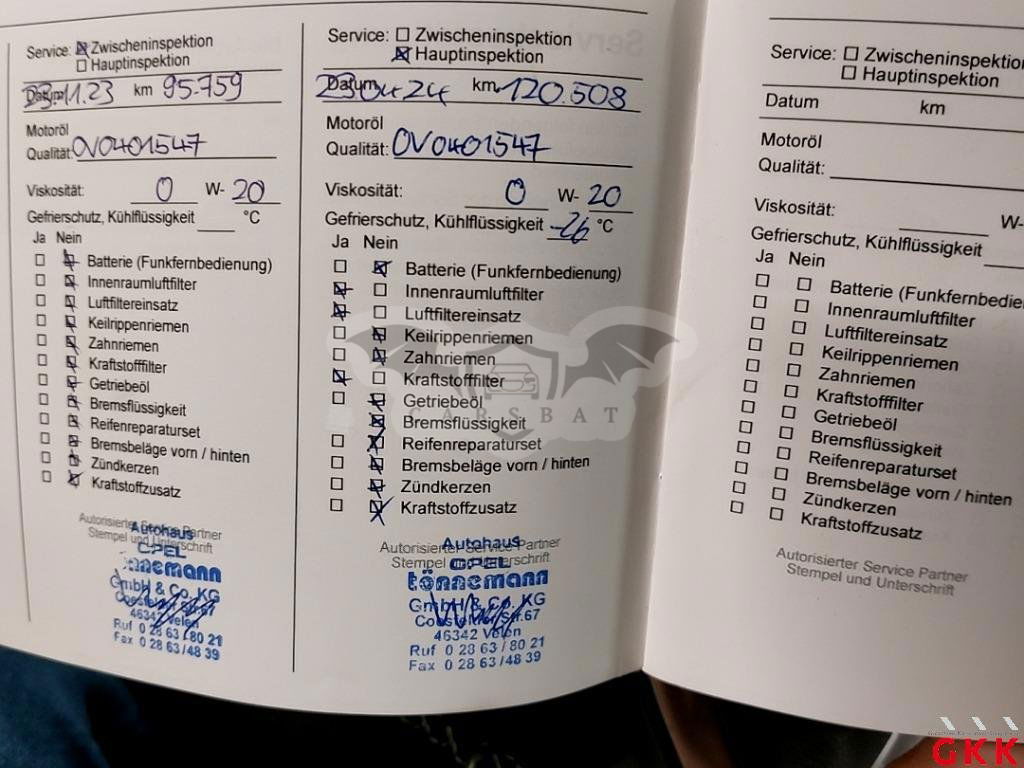 Service: ☒ Zwischeninspektion
☐ Hauptinspektion
Datum 23.11.23 km 95.759
Motoröl
Qualität: OV0401547
Viskosität: 0 W- 20
Gefrierschutz, Kühlflüssigkeit ____ °C
Ja Nein
☐ ☒ Batterie (Funkfernbedienung)
☐ ☒ Innenraumluftfilter
☐ ☒ Luftfiltereinsatz
☐ ☒ Keilrippenriemen
☐ ☒ Zahnriemen
☐ ☒ Kraftstofffilter
☐ ☒ Getriebeöl
☐ ☒ Bremsflüssigkeit
☐ ☒ Reifenreparaturset
☐ ☒ Bremsbeläge vorn / hinten
☐ ☒ Zündkerzen
☐ ☒ Kraftstoffzusatz
Autorisierter Service Partner
Stempel und Unterschrift
Autohaus
OPEL
tönnemann
GmbH & Co. KG
46342 Velen
Ruf 0 28 63 / 80 21
Fax 0 28 63 / 48 39
Service: ☐ Zwischeninspektion
☒ Hauptinspektion
Datum 23.04.24 km 120.508
Motoröl
Qualität: OV0401547
Viskosität: 0 W- 20
Gefrierschutz, Kühlflüssigkeit -26 °C
Ja Nein
☐ ☒ Batterie (Funkfernbedienung)
☒ ☐ Innenraumluftfilter
☒ ☐ Luftfiltereinsatz
☐ ☒ Keilrippenriemen
☐ ☒ Zahnriemen
☒ ☐ Kraftstofffilter
☐ ☒ Getriebeöl
☒ Bremsflüssigkeit
☐ ☒ Reifenreparaturset
☐ ☒ Bremsbeläge vorn / hinten
☐ ☒ Zündkerzen
☐ ☒ Kraftstoffzusatz
Autorisierter Service Partner
Stempel und Unterschrift
Autohaus
OPEL
tönnemann
GmbH & Co. KG
Coesfelder Str.67
46342 Velen
Ruf 0 28 63 / 80 21
Fax 0 28 63 / 48 39
Service: ☐ Zwischeninspektion
☐ Hauptinspektion
Datum km
Motoröl
Qualität:
Viskosität: ____ W-
Gefrierschutz, Kühlflüssigkeit
Ja Nein
☐ ☐ Batterie (Funkfernbedie
☐ ☐ Innenraumluftfilter
☐ ☐ Luftfiltereinsatz
☐ ☐ Keilrippenriemen
☐ ☐ Zahnriemen
☐ ☐ Kraftstofffilter
☐ ☐ Getriebeöl
☐ ☐ Bremsflüssigkeit
☐ ☐ Reifenreparaturset
☐ ☐ Bremsbeläge vorn / hinten
☐ ☐ Zündkerzen
☐ ☐ Kraftstoffzusatz
Autorisierter Service Partner
Stempel und Unterschrift
CARSBAT
GKK